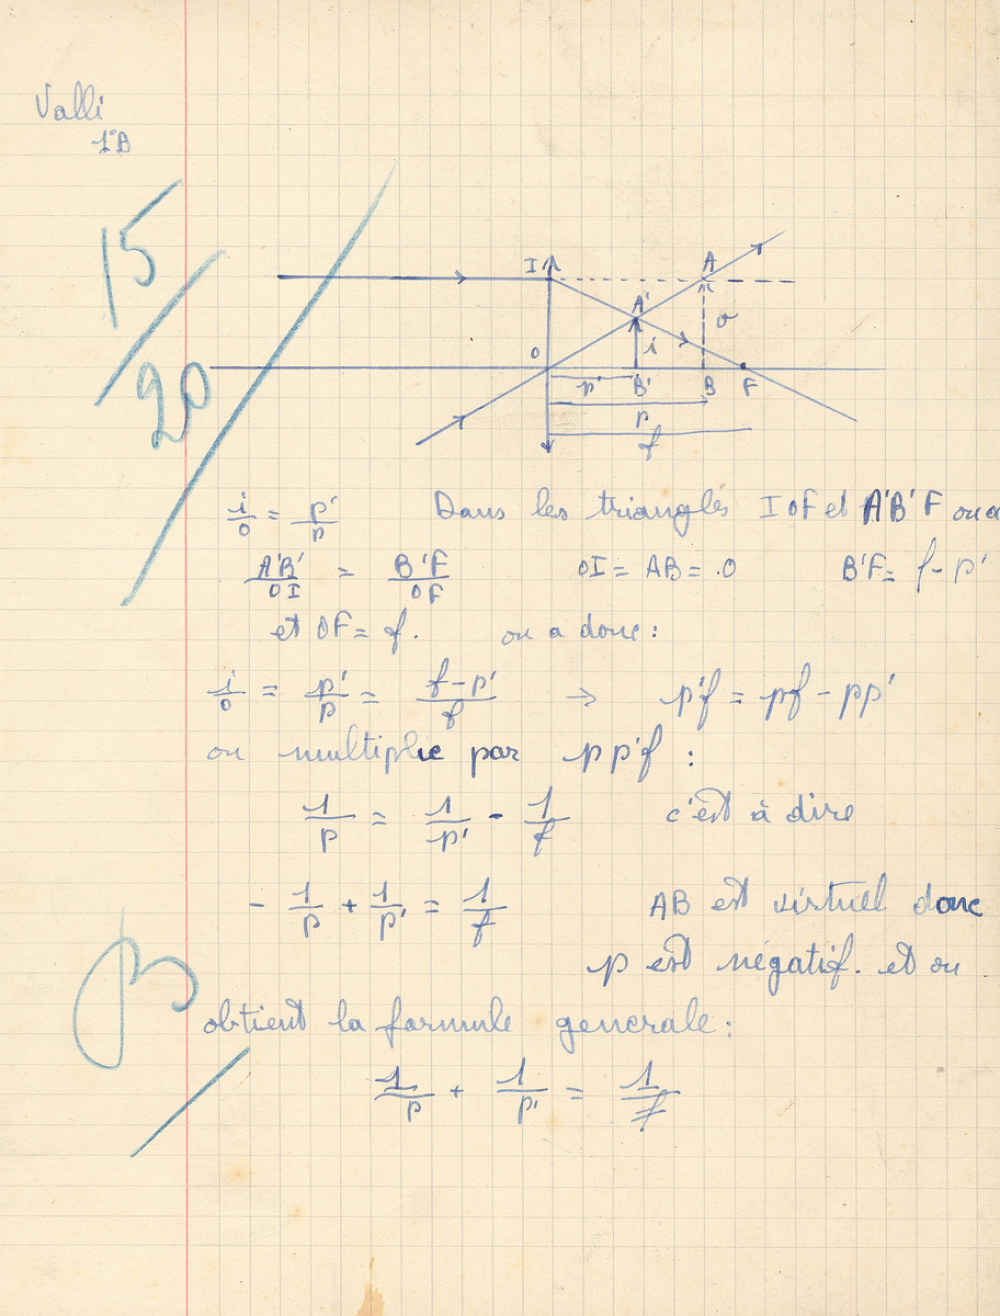 Valli
1°B
15/20
I A
A'
o
O i
p' B' B F
p
f
i/o = p'/p Dans les triangles IOF et A'B'F on a
A'B'/OI = B'F/OF OI = AB = .O B'F = f - p'
et OF = f. on a donc :
i/o = p'/p = f-p'/f → p'f = pf - pp'
on multiplie par pp'f :
1/p = 1/p' - 1/f c'est à dire
- 1/p + 1/p' = 1/f AB est virtuel donc
p est négatif. et on
obtient la formule generale :
1/p + 1/p' = 1/f
B